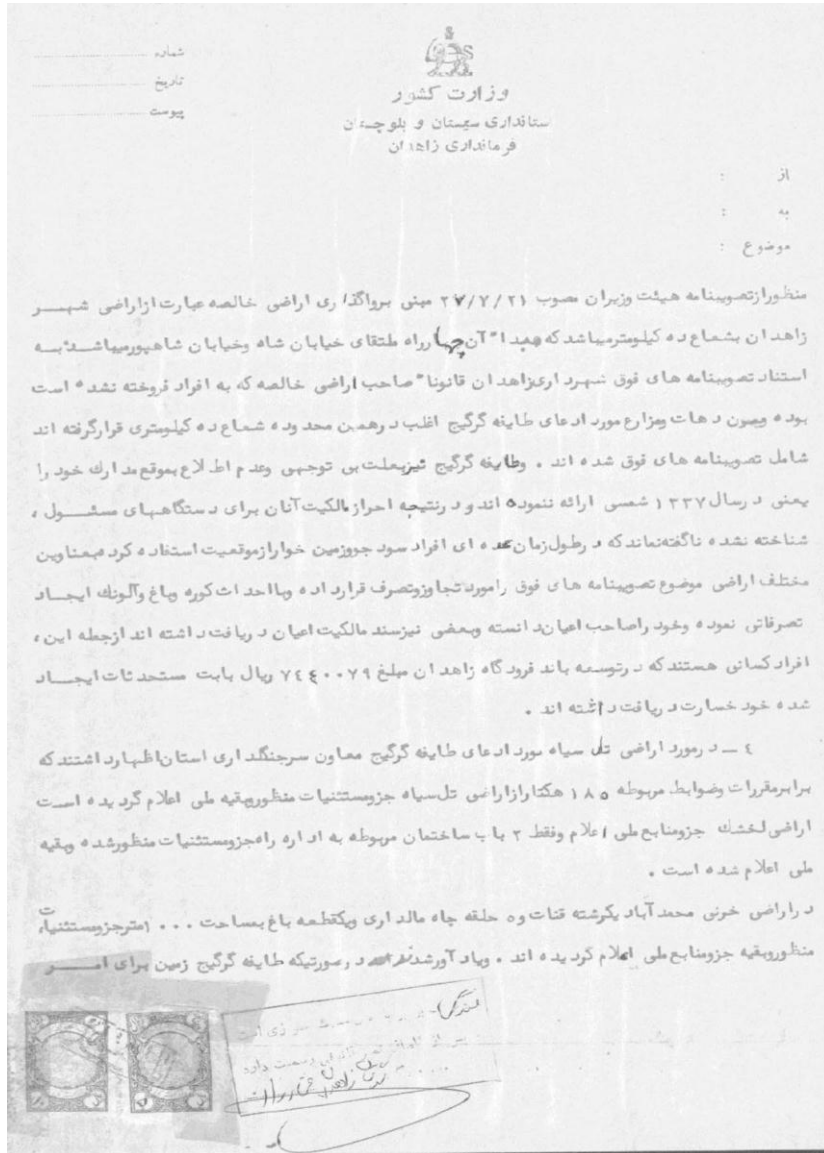 شماره
تاریخ
پیوست
وزارت کشور
استانداری سیستان و بلوچستان
فرمانداری زاهدان
از :
به :
موضوع :
منظورازتصویبنامه هیئت وزیران مصوب ۲۷/۷/۲۱ مبنی برواگذاری اراضی خالصه عبارت ازاراضی شهر
زاهدان بشعاع ده کیلومترمیباشد که مبدا" آن چهارراه ملتقای خیابان شاه وخیابان شاهپورمیباشد به
استناد تصویبنامه های فوق شهرداری زاهدان قانونا" صاحب اراضی خالصه که به افراد فروخته نشده است
بوده وچون دهات ومزارع مورد ادعای طایفه گرگیج اغلب درهمین محدوده شعاع ده کیلومتری قرارگرفته اند
شامل تصویبنامه های فوق شده اند . وطایفه گرگیج نیزبعلت بی توجهی وعدم اطلاع بموقع مدارك خود را
یعنی درسال ۱۳۳۷ شمسی ارائه ننموده اند و درنتیجه احراز مالکیت آنان برای دستگاههای مسئول ،
شناخته نشده ناگفته نماند که درطول زمان عده ای افراد سود جووزمین خوارازموقعیت استفاده کرده بعناوین
مختلف اراضی موضوع تصویبنامه های فوق رامورد تجاوزوتصرف قرارداده وبااحداث کوره وباغ وآلونك ایجاد
تصرفاتی نموده وخود راصاحب اعیان دانسته وبعضی نیزسند مالکیت اعیان دریافت داشته اند ازجمله این ،
افراد کسانی هستند که درتوسعه باند فرودگاه زاهدان مبلغ ۷۴۴۰۰۷۹ ریال بابت مستحدثات ایجاد
شده خود خسارت دریافت داشته اند .
٤ ــ درمورد اراضی تل سیاه مورد ادعای طایفه گرگیج معاون سرجنگلداری استان اظهارداشتند که
برابرمقررات وضوابط مربوطه ۱۸۵ هکتارازاراضی تل سیاه جزومستثنیات منظوروبقیه ملی اعلام گردیده است
اراضی لخشك جزومنابع ملی اعلام وفقط ۲ باب ساختمان مربوطه به اداره راه جزومستثنیات منظورشده وبقیه
ملی اعلام شده است .
دراراضی خرنی محمدآباد یکرشته قنات وده حلقه چاه مالداری ویکقطعه باغ بمساحت ۱۰۰۰ مترجزومستثنیات
منظوروبقیه جزومنابع ملی اعلام گردیده اند . ویادآورشدند که درصورتیکه طایفه گرگیج زمین برای امر